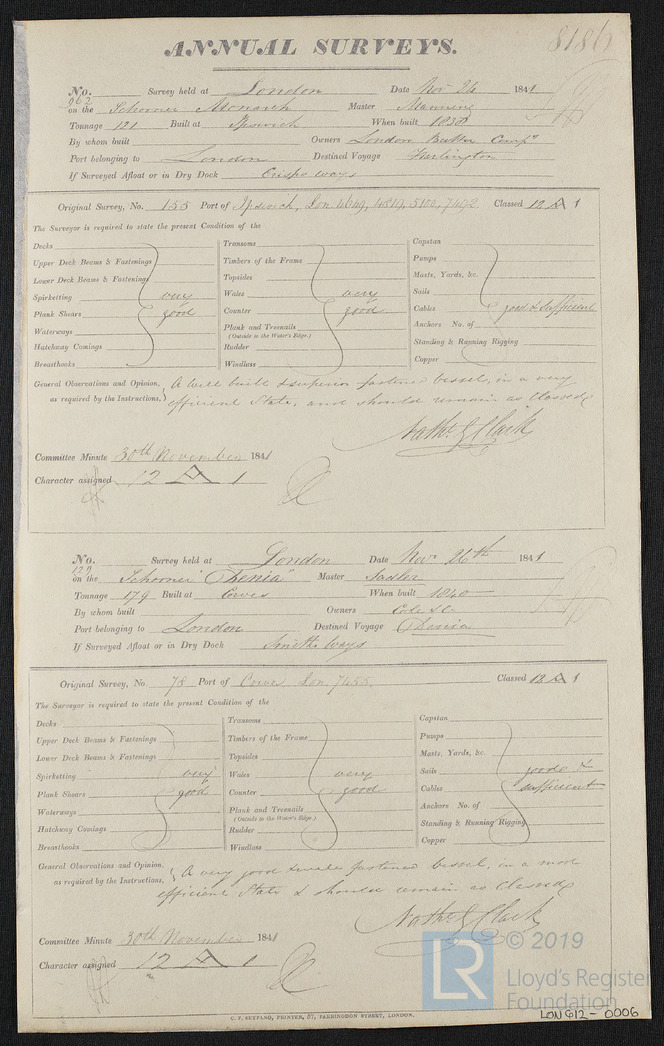 ANNUAL SURVEYS.
8186
No. 962 Survey held at London Date Nov 24 1841
on the Schooner Monarch Master Manning
Tonnage 121 Built at Ipswich When built 1838
By whom built Owners London Compy
Port belonging to London Destined Voyage Harlington
If Surveyed Afloat or in Dry Dock Crisps ways
Original Survey, No. 155 Port of Ipswich, Lon. 4649, 4819, 5102, 7492 Classed 12 A 1
The Surveyor is required to state the present Condition of the
Decks Transoms Capstan
Upper Deck Beams & Fastenings Timbers of the Frame Pumps
Lower Deck Beams & Fastenings Topsides Masts, Yards, &c.
Spirketting very Wales very Sails
Plank Shears good Counter good Cables good & sufficient
Waterways Plank and Treenails Anchors No. of
(Outside to the Water's Edge.)
Hatchway Comings Rudder Standing & Running Rigging
Breasthooks Windlass Copper
General Observations and Opinion, A well built & superior fastened vessel, in a very
as required by the Instructions. efficient State, and should remain as Classed
Nathl. G Clark
Committee Minute 30th November 1841
Character assigned 12 A 1
No. 127 Survey held at London Date Nov 26th 1841
on the Schooner "Denia" Master Sadler
Tonnage 179 Built at Cowes When built 1840
By whom built Owners Cole & Co
Port belonging to London Destined Voyage Denia
If Surveyed Afloat or in Dry Dock Smiths ways
Original Survey, No. 78 Port of Cowes Lon. 7455 Classed 12 A 1
The Surveyor is required to state the present Condition of the
Decks Transoms Capstan
Upper Deck Beams & Fastenings Timbers of the Frame Pumps
Lower Deck Beams & Fastenings Topsides Masts, Yards, &c.
Spirketting very Wales very Sails good &
Plank Shears good Counter good Cables sufficient
Waterways Plank and Treenails Anchors No. of
(Outside to the Water's Edge.)
Hatchway Comings Rudder Standing & Running Rigging
Breasthooks Windlass Copper
General Observations and Opinion, A very good fastened vessel, in a most
as required by the Instructions. efficient State & should remain as Classed
Nathl. G Clark
Committee Minute 30th November 1841
Character assigned 12 A 1
C. F. SEYFANG, PRINTER, 57, FARRINGDON STREET, LONDON.
LR © 2019
Lloyd's Register
Foundation
LON612-0006